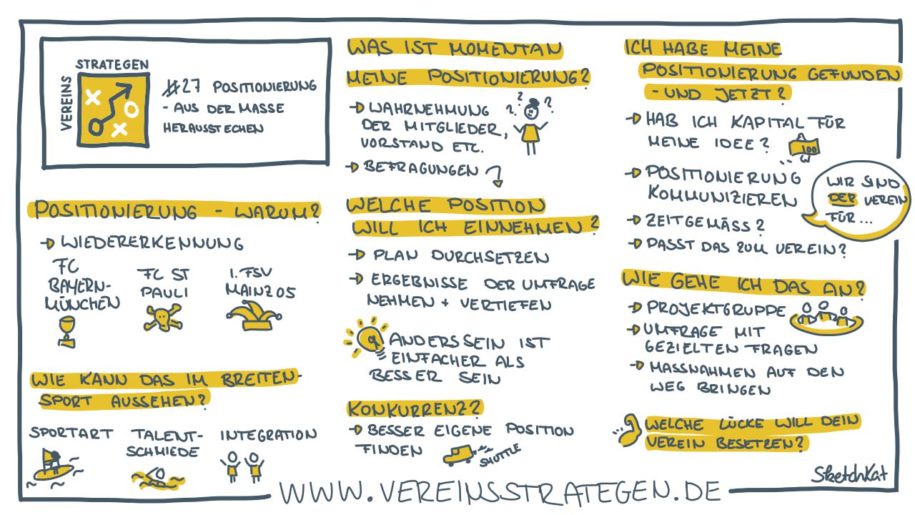 VEREINS
STRATEGEN
#27 POSITIONIERUNG
- AUS DER MASSE
HERAUSSTECHEN
POSITIONIERUNG - WARUM?
WIEDERERKENNUNG
FC
BAYERN-
MÜNCHEN
FC ST
PAULI
1. FSV
MAINZ 05
WIE KANN DAS IM BREITEN-
SPORT AUSSEHEN?
SPORTART
TALENT-
SCHMIEDE
INTEGRATION
WAS IST MOMENTAN
MEINE POSITIONIERUNG?
WAHRNEHMUNG
DER MITGLIEDER,
VORSTAND ETC.
? ? ?
BEFRAGUNGEN
WELCHE POSITION
WILL ICH EINNEHMEN?
PLAN DURCHSETZEN
ERGEBNISSE DER UMFRAGE
NEHMEN + VERTIEFEN
ANDERS SEIN IST
EINFACHER ALS
BESSER SEIN
KONKURRENZ?
BESSER EIGENE POSITION
FINDEN
SHUTTLE
ICH HABE MEINE
POSITIONIERUNG GEFUNDEN
- UND JETZT?
HAB ICH KAPITAL FÜR
MEINE IDEE?
100
POSITIONIERUNG
KOMMUNIZIEREN
WIR SIND
DER VEREIN
FÜR ...
ZEITGEMÄSS?
PASST DAS ZUM VEREIN?
WIE GEHE ICH DAS AN?
PROJEKTGRUPPE
UMFRAGE MIT
GEZIELTEN FRAGEN
MASSNAHMEN AUF DEN
WEG BRINGEN
WELCHE LÜCKE WILL DEIN
VEREIN BESETZEN?
SketchKat
WWW.VEREINSSTRATEGEN.DE